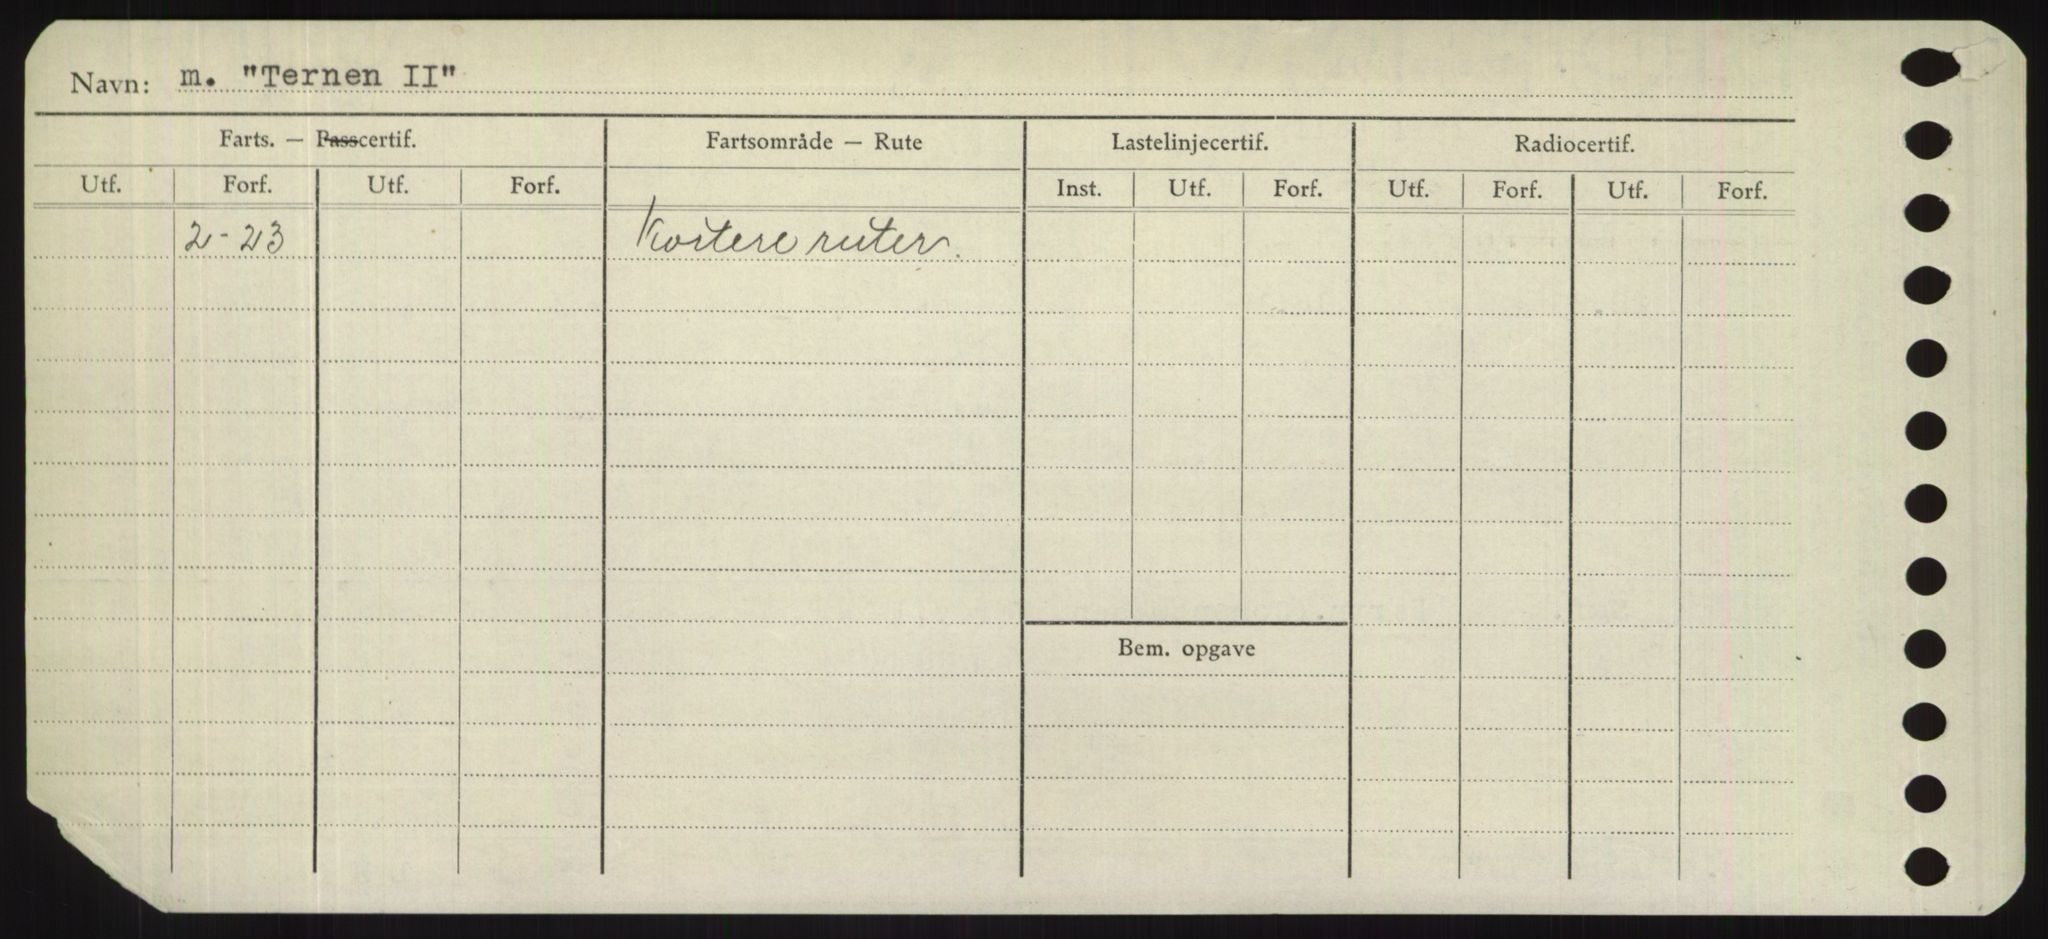 Navn: m. "Ternen II"
Farts. — Passcertif. Fartsområde — Rute Lastelinjecertif. Radiocertif.
Utf. Forf. Utf. Forf. Inst. Utf. Forf. Utf. Forf. Utf. Forf.
2-23 Kortere ruter.
Bem. opgave